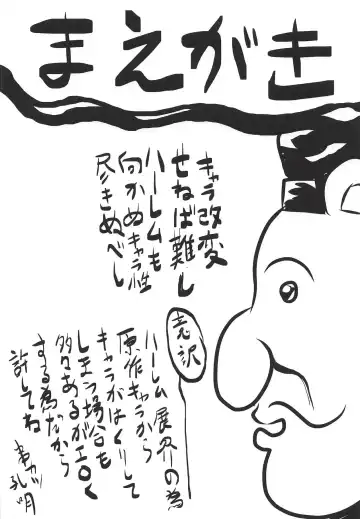 まえがき
キャラ改変
せねば難し
ハーレムも
向かぬキャラ性
尽きぬべし
意訳
ハーレム展開の為
原作キャラから
キャラがはくりして
しまう場合も
多々あるがエロく
する為だから
許してね